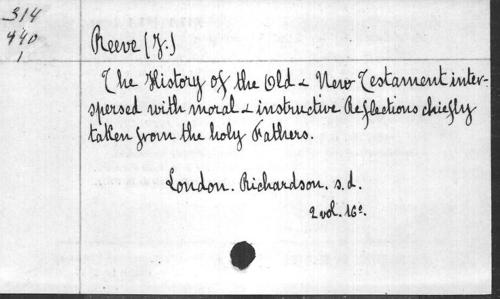 314
440
1
Reeve (J.)
The History of the Old & New Testament inter-
spersed with moral & instructive Reflections chiefly
taken from the holy Fathers.
London. Richardson. s. d.
2 vol. 16º.